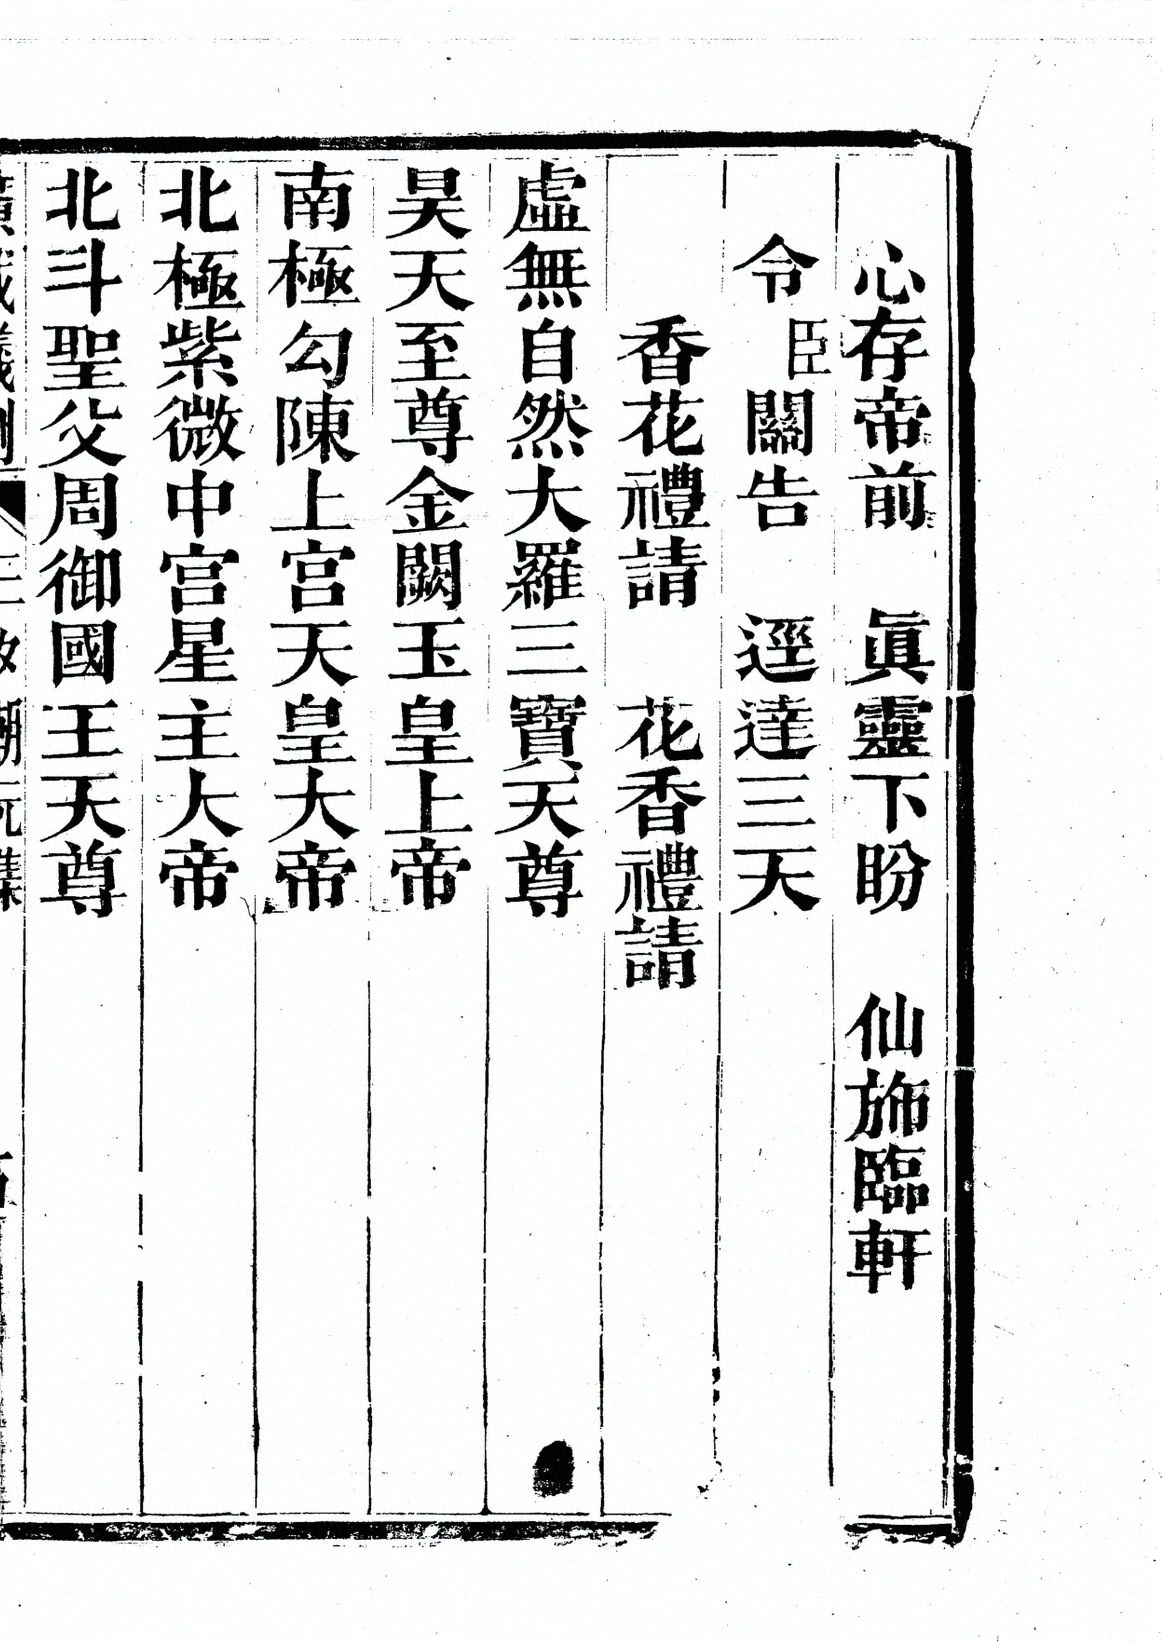 心存帝前　眞靈下盼　仙斾臨軒
令臣關告　逕達三天
香花禮請　花香禮請
虛無自然大羅三寶天尊
昊天至尊金闕玉皇上帝
南極勾陳上宮天皇大帝
北極紫微中宮星主大帝
北斗聖父周御國王天尊